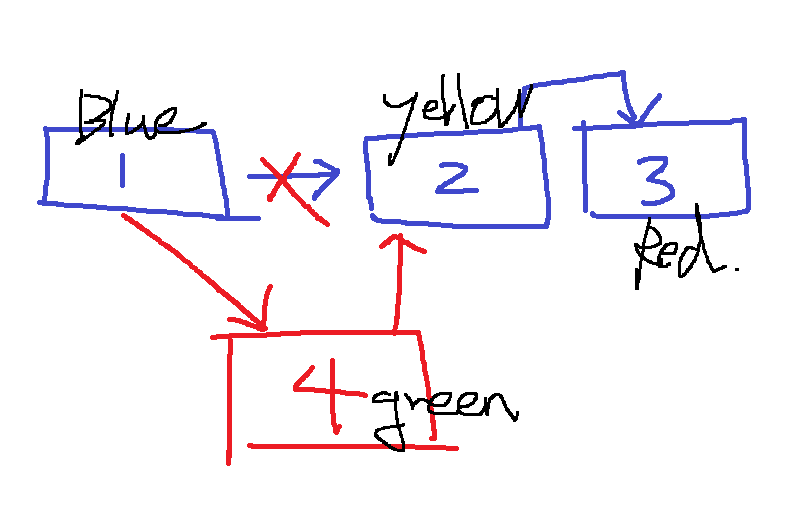 Blue
1
yellow
2
3
Red.
4
green